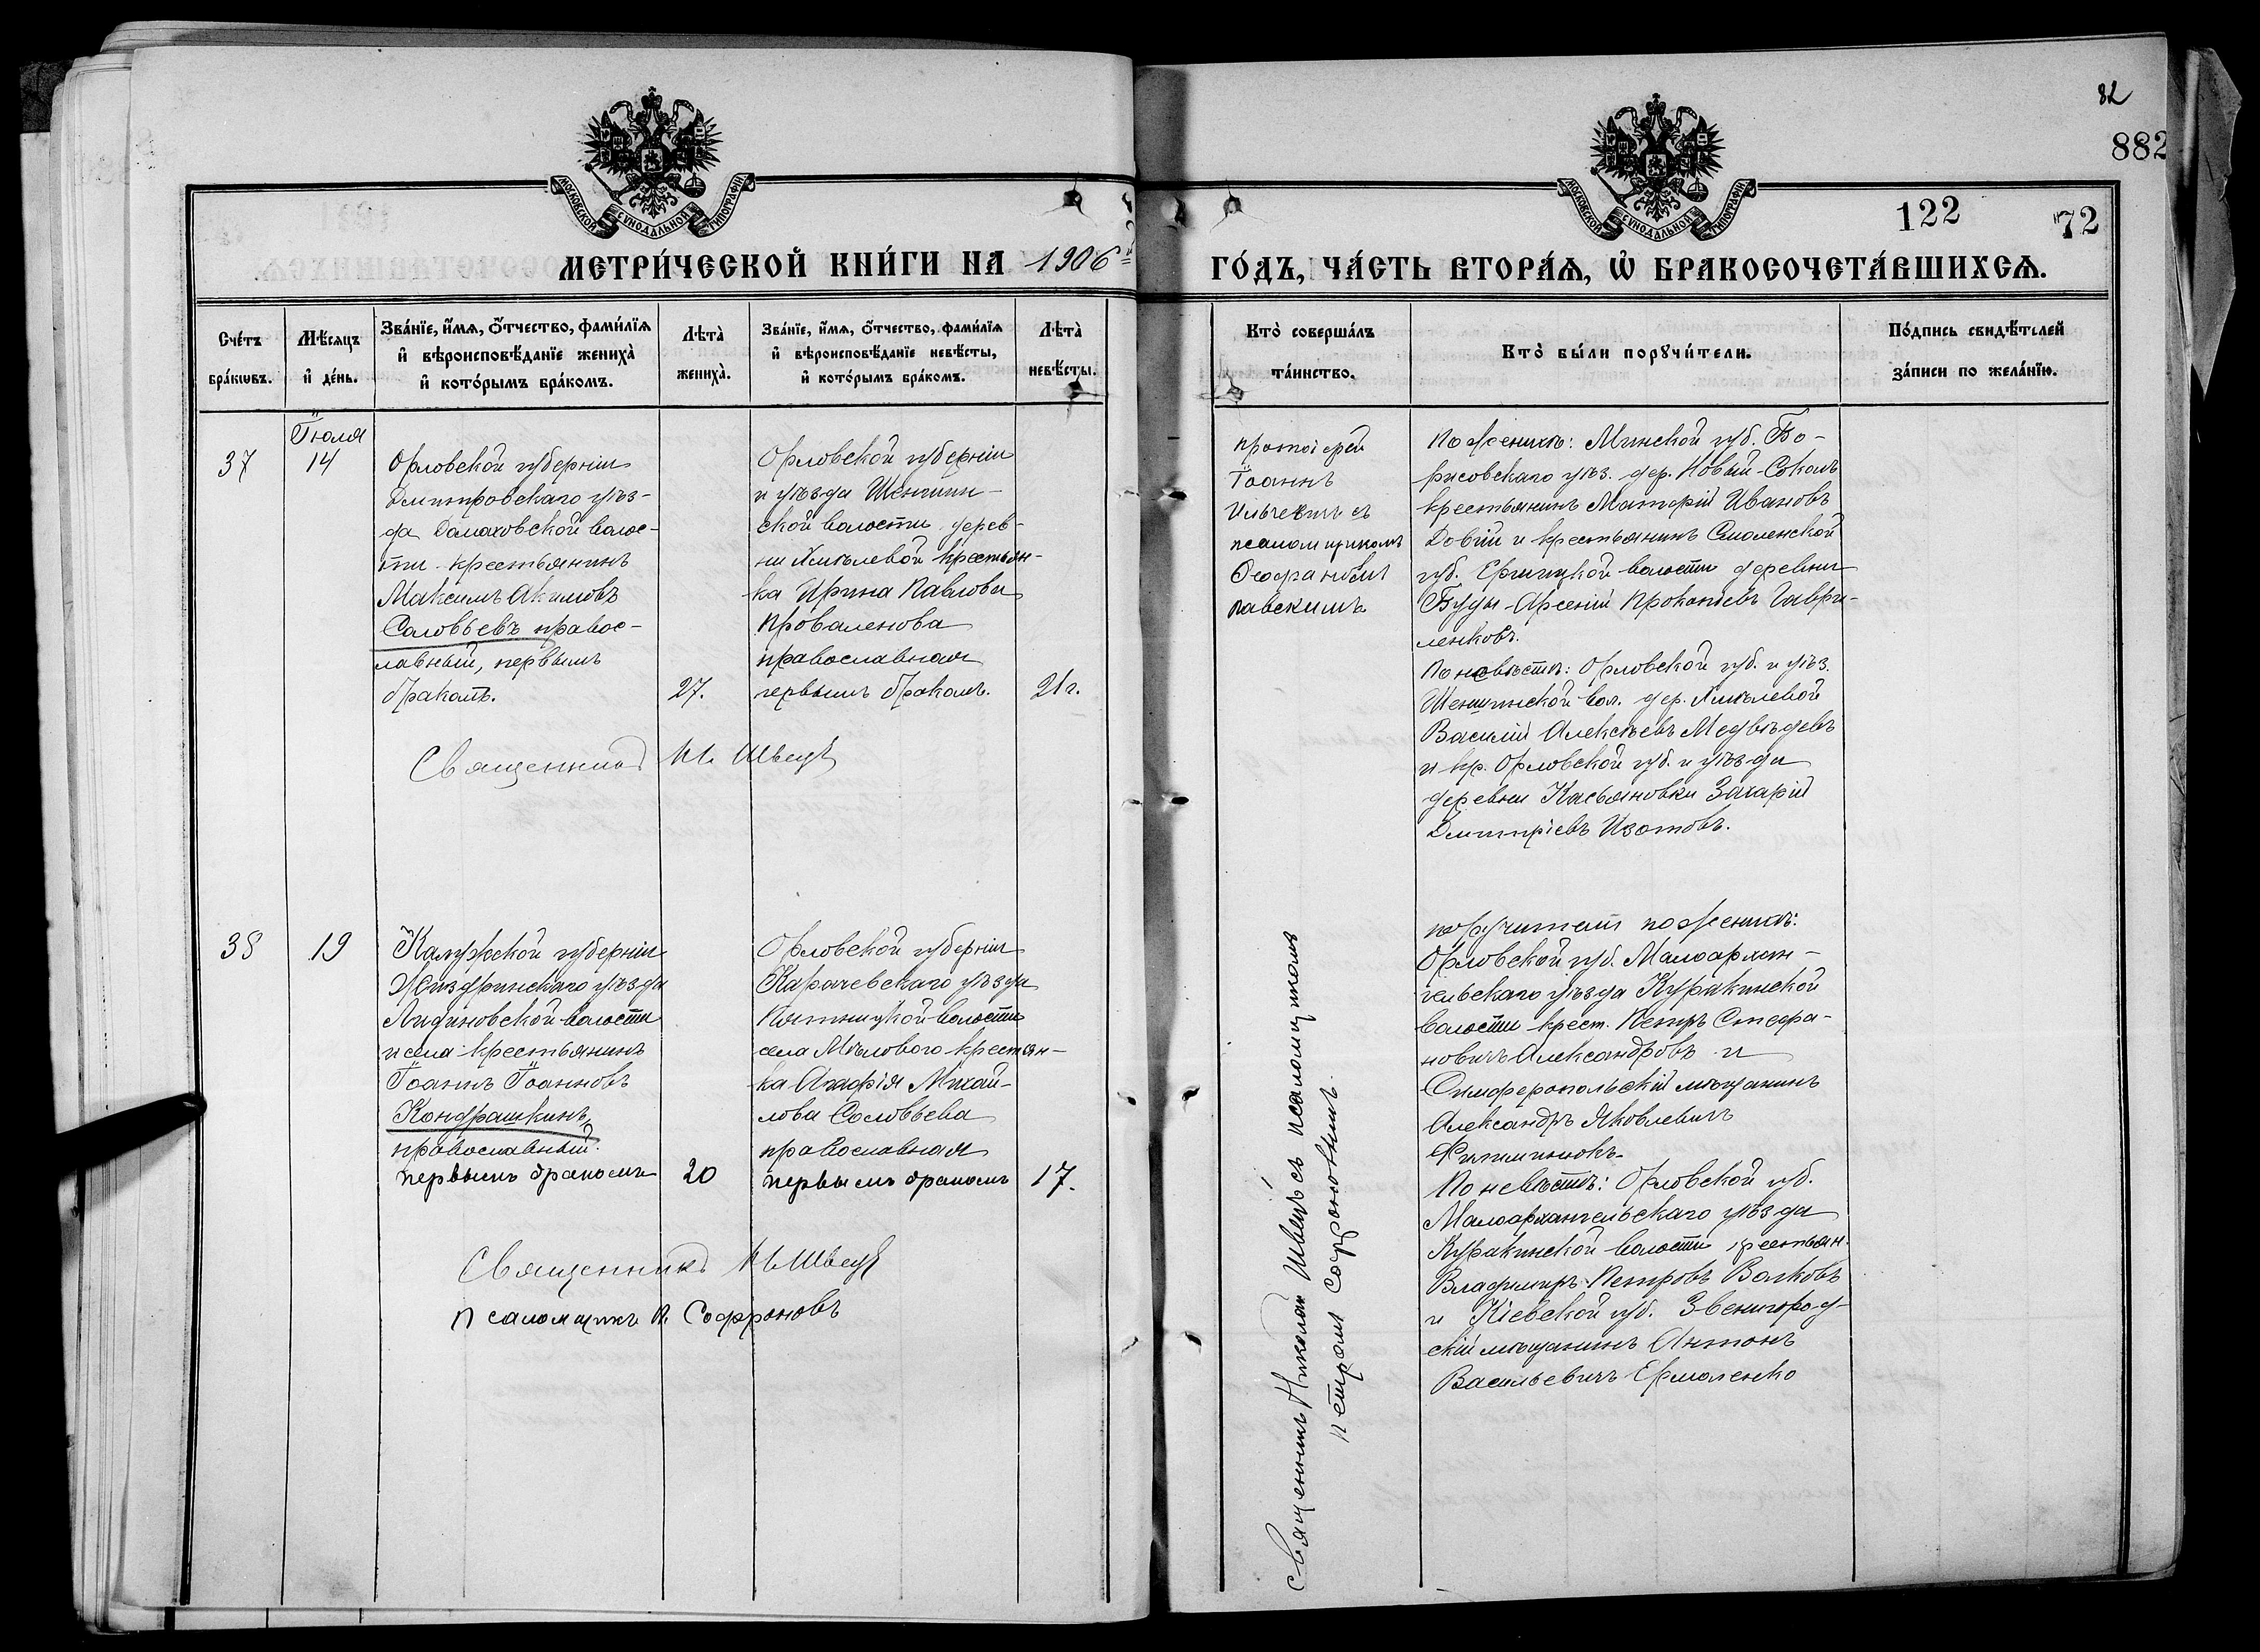 82
882
МОСКОВСКОЙ СѴНОДАЛЬНОЙ ТИПОГРАФІИ
МОСКОВСКОЙ СѴНОДАЛЬНОЙ ТИПОГРАФІИ
122
72
МЕТРИ́ЧЕСКОЙ КНИ́ГИ НА 1906
ГО́ДЪ, ЧА́СТЬ ВТОРА́Ѧ, Ѽ БРАКОСОЧЕТА́ВШИХСѦ.
Сче́тъ бра́кѡвъ.
Мѣ́сѧцъ и҆ де́нь.
Зва́нїе, и҆́мѧ, ѻ҆́тчество, фами́лїѧ
и҆ вѣроисповѣ́данїе жениха̀
и҆ кото́рымъ бра́комъ.
Лѣ́та̀ жениха̀.
Зва́нїе, и҆́мѧ, ѻ҆́тчество, фами́лїѧ
и҆ вѣроисповѣ́данїе невѣ́сты,
и҆ кото́рымъ бра́комъ.
Лѣ́та̀ невѣ́сты.
Кто̀ соверша́лъ
та́инство.
Кто̀ бы́ли порꙋчи́тели.
По́дпись свидѣ́телей
за́писи по жела́нїю.
37
Іюля
14
Орловской губерніи
Дмитровскаго уѣз-
да Домаховской волос-
ти крестьянинъ
Максимъ Акимовъ
Соловьевъ правос-
лавный, первымъ
бракомъ.
27.
Орловской губерніи
и уѣзда Шеншин-
ской волости дерев-
ни Хмѣлевой крестьян-
ка Ирина Павлова
Проваленова
православная
первымъ бракомъ.
21 г.
Священникъ Н. Швецъ
протоіерей
Іоаннъ
Ильчевичъ съ
псаломщикомъ
Ѳеофаномъ
Павскимъ
По женихѣ: Минской губ. Бо-
рисовскаго уѣз. дер. Новый-Соколъ
крестьянинъ Матфій Ивановъ
Довгій и крестьянинъ Смоленской
губ. волости деревни
Буды Арсеній Прокопіевъ Гаври-
ленковъ.
По невѣстѣ: Орловской губ. и уѣз.
Шеншинской вол. дер. Хмѣлевой
Василій Алексѣевъ Медвѣдевъ
и кр. Орловской губ. и уѣзда
деревни Касьяновки Захарій
Дмитріевъ Изотовъ.
38
19
Калужской губерніи
Жиздринскаго уѣзда
Людиновской волости
и села крестьянинъ
Іоаннъ Іоанновъ
Кондрашкинъ,
православный.
первымъ бракомъ
20
Орловской губерніи
Карачевскаго уѣзда
Пятницкой волости
села Мѣлового крестьян-
ка Агафія Михай-
лова Соловьева
православная
первымъ бракомъ
17.
Священникъ Н. Швецъ
Псаломщикъ П. Софроновъ
Священникъ Николай Швецъ съ псаломщикомъ
Петромъ Софроновымъ.
поручители по женихѣ:
Орловской губ. Малоархан-
гельскаго уѣзда Куракинской
волости крест. Петръ Стефа-
новичъ Александровъ и
Симферопольскій мѣщанинъ
Александръ Яковлевичъ
По невѣстѣ: Орловской губ.
Малоархангельскаго уѣзда
Куракинской волости крестьян.
Владимиръ Петровъ Волковъ
и Кіевской губ. Звенигород-
скій мѣщанинъ Антонъ
Васильевичъ Ермоленко